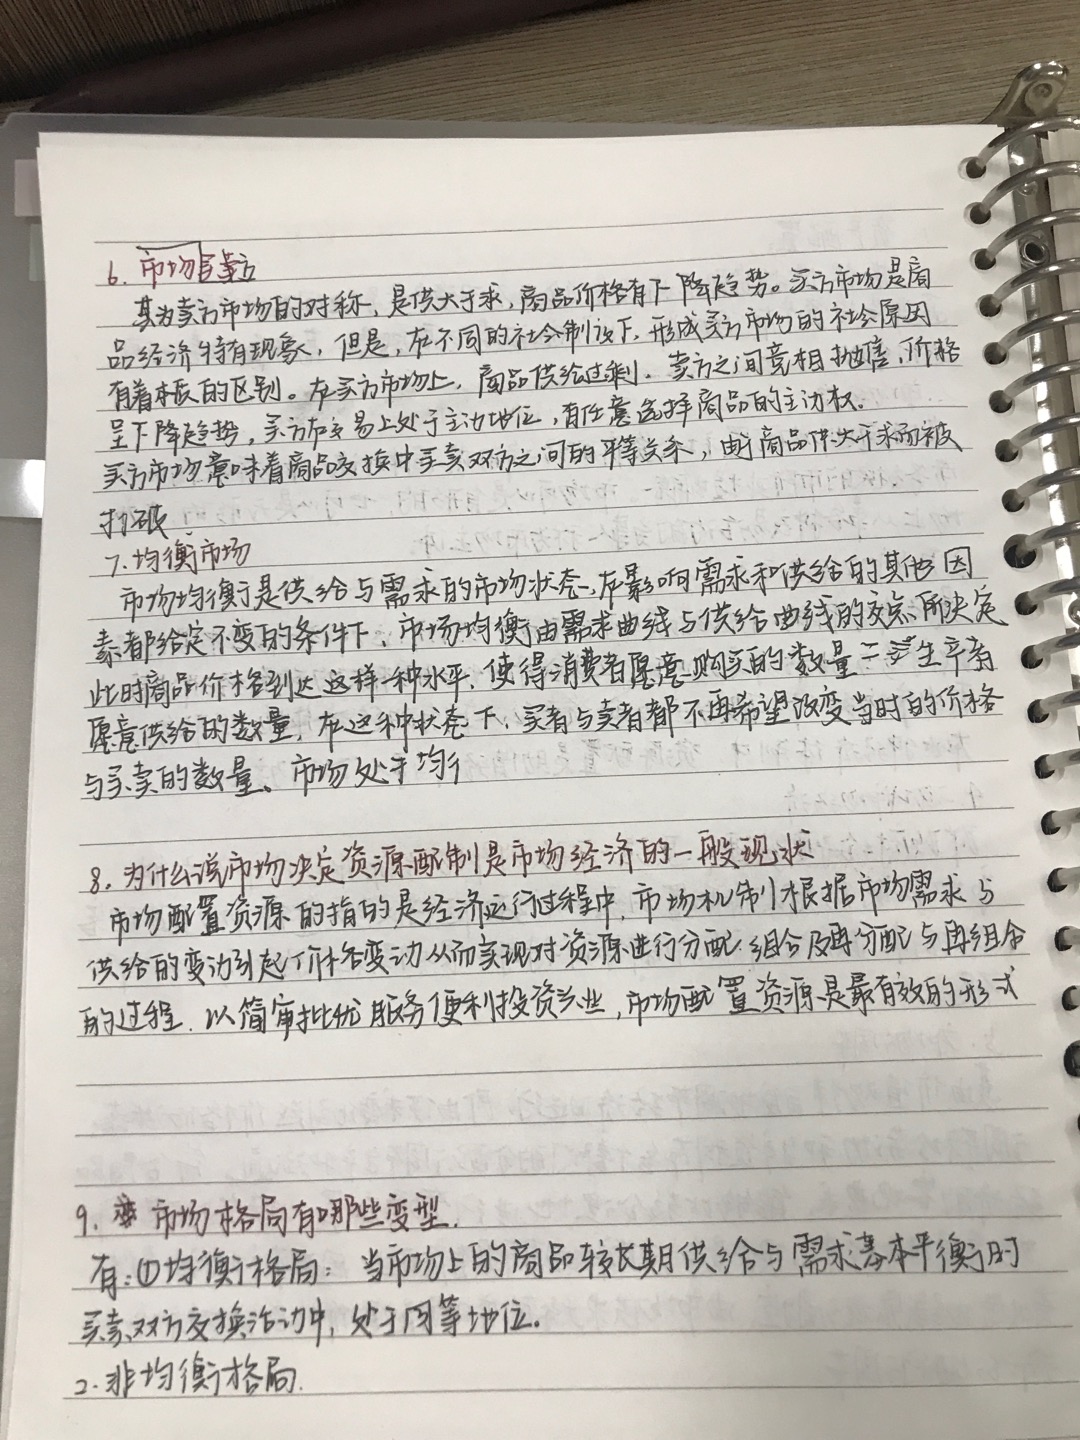 6. 市场
其为卖方市场的对称,是供大于求,商品价格有下降趋势。买方市场是商
品经济特有现象,但是,在不同的社会制度下,形成买方市场的社会原因
有着本质的区别。在买方市场上,商品供给过剩,卖方之间竞相抛售,价格
呈下降趋势,买方在交易上处于主动地位,有任意选择商品的主动权。
买方市场意味着商品交换中买卖双方之间的平等关系,由于商品供大于求而被
打破
7. 均衡市场
市场均衡是供给与需求的市场状态,在影响需求和供给的其他因
素都给定不变的条件下,市场均衡由需求曲线与供给曲线的交点所决定
此时商品价格到达这样一种水平,使得消费者愿意购买的数量=生产者
愿意供给的数量,在这种状态下,买者与卖者都不再希望改变当时的价格
与买卖的数量。市场处于均彳
8. 为什么说市场决定资源配制是市场经济的一般现状
市场配置资源的指的是经济运行过程中,市场机制根据市场需求与
供给的变动引起价格变动从而实现对资源进行分配.组合及再分配与再组合
的过程.以简审批优服务便利投资兴业,市场配置资源是最有效的形式
9. 市场格局有哪些变型.
有:①均衡格局:当市场上的商品较长期供给与需求基本平衡时
买卖双方交换活动中,处于同等地位。
2.非均衡格局.